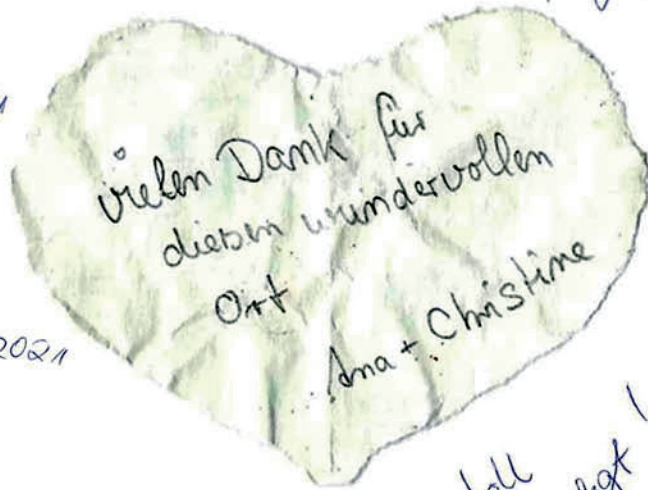 vielen Dank für
diesen wundervollen
Ort
Ana + Christine
2021